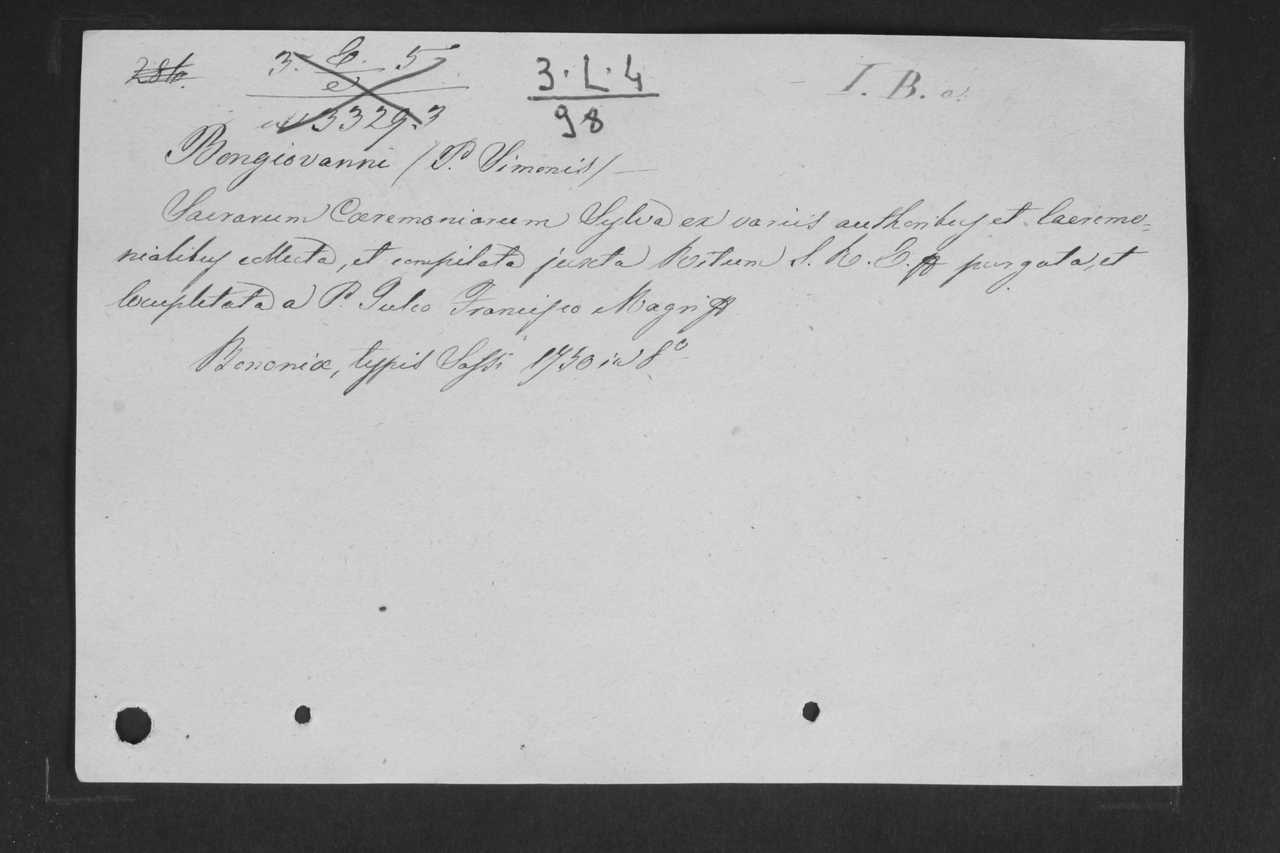 286.
3. C. 5
3329.3
3.L.4
98
I. B. a.
Bongiovanni (P. Simonis) —
Sacrarum Cæremoniarum Sylva ex variis authoribus et Caeremo=
nialibus collecta, et compilata juxta Ritum S. R. E. purgata, et
locupletata a P. Julio Francisco Magri
Bononiæ, typis Sassi 1730 in 8º